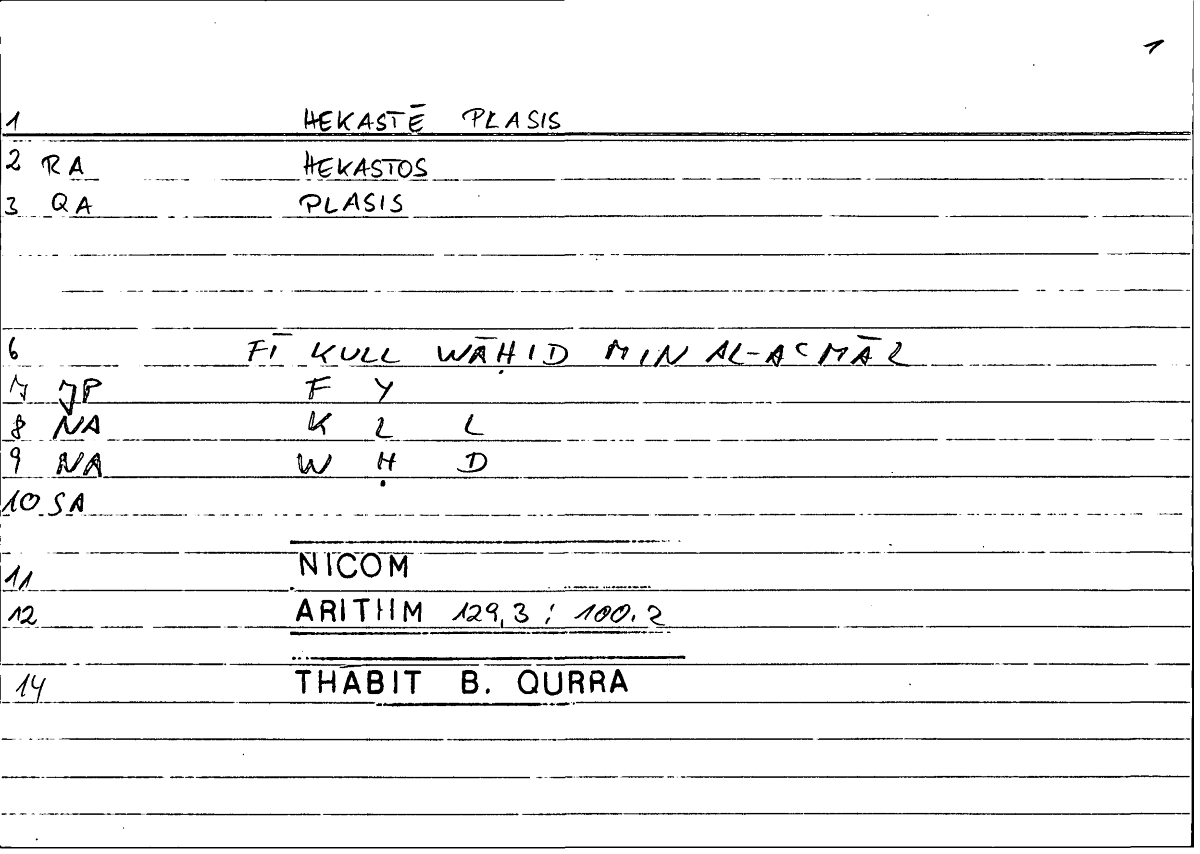 1
1 HEKASTĒ PLASIS
2 RA HEKASTOS
3 QA PLASIS
6 FĪ KULL WĀḤID MIN AL-AʿMĀL
7 JP F Y
8 NA K L L
9 NA W Ḥ D
10 SA
11 NICOM
12 ARITHM 129,3 ; 100.2
14 THABIT B. QURRA